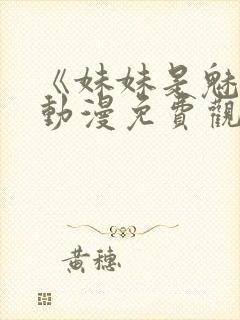 《妹妹是魅
動漫免費觀
黃穗